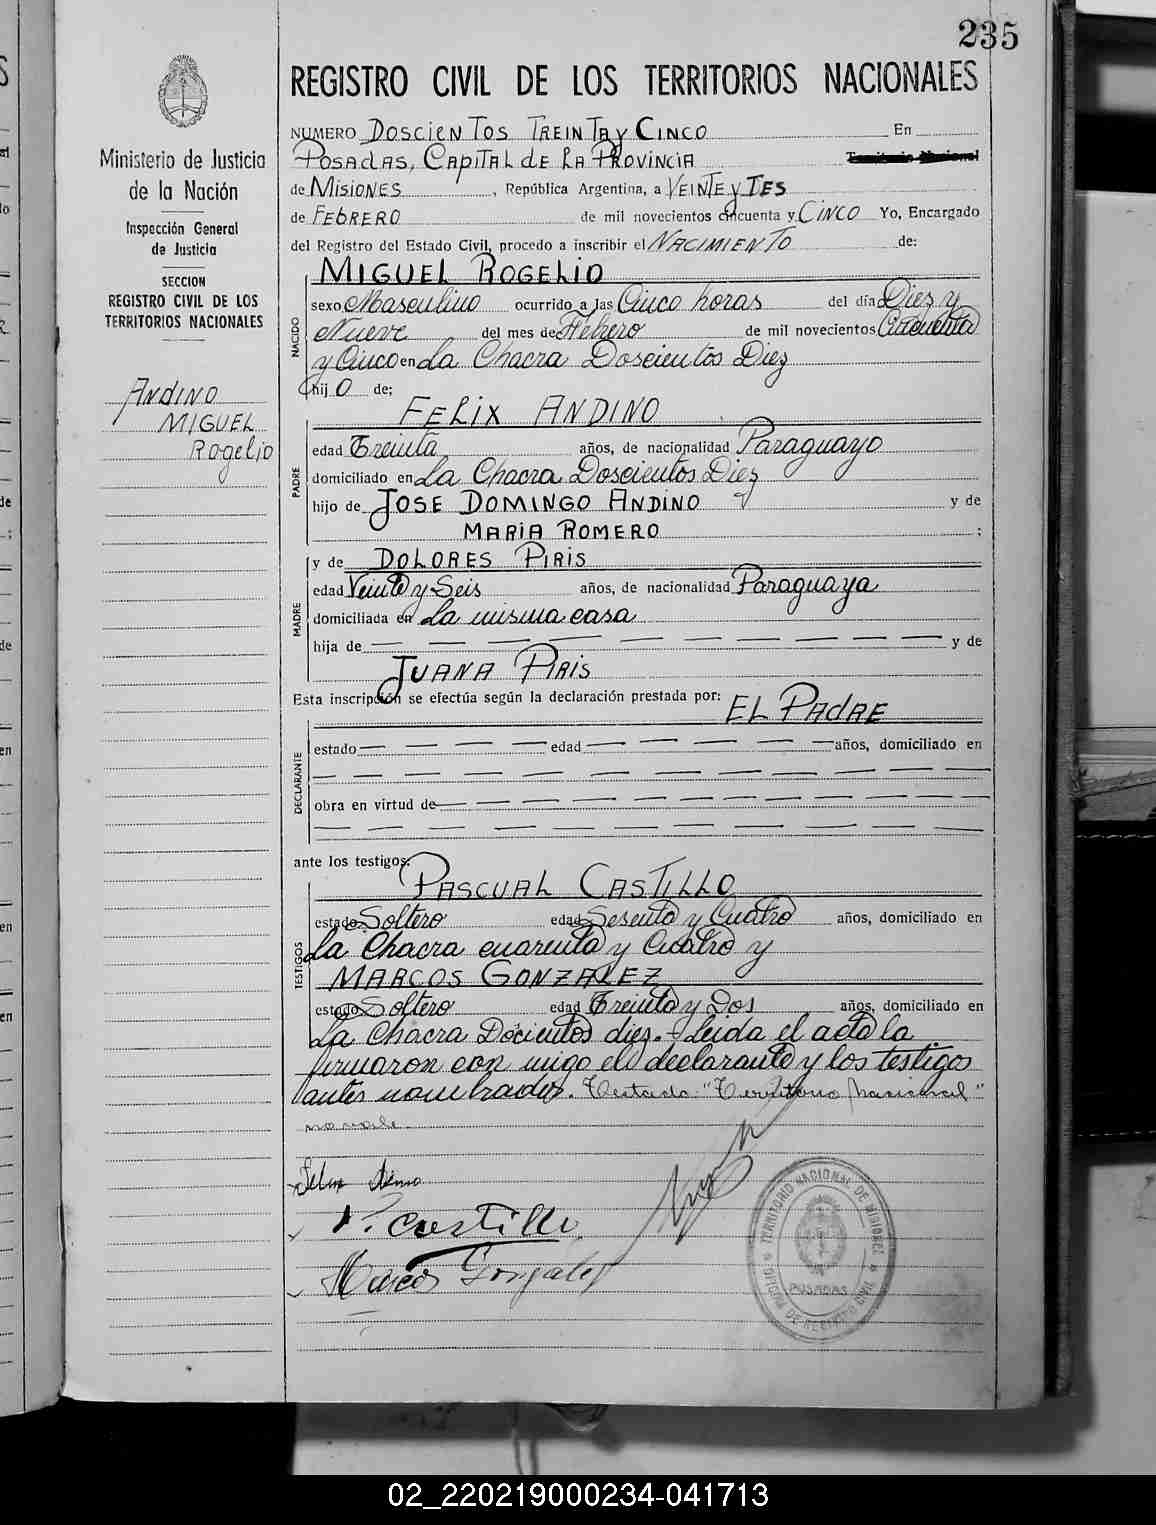 235
REGISTRO CIVIL DE LOS TERRITORIOS NACIONALES
Ministerio de Justicia
de la Nación
Inspección General
de Justicia
SECCION
REGISTRO CIVIL DE LOS
TERRITORIOS NACIONALES
ANDINO
MIGUEL
Rogelio
NUMERO DOSCIENTOS TREINTA y CINCO En
POSADAS, CAPITAL de LA PROVINCIA Territorio Nacional
de MISIONES, República Argentina, a VEINTE y TES
de FEBRERO de mil novecientos cincuenta y CINCO Yo, Encargado
del Registro del Estado Civil, procedo a inscribir el NACIMIENTO de:
MIGUEL ROGELIO
NACIDO
sexo Masculino ocurrido a las Cinco horas del día Diez y
Nueve del mes de Febrero de mil novecientos Cincuenta
y Cinco en La Chacra Doscientos Diez
hijo de:
FELIX ANDINO
PADRE
edad Treinta años, de nacionalidad Paraguayo
domiciliado en La Chacra Doscientos Diez
hijo de JOSE DOMINGO ANDINO y de
MARIA ROMERO ;
y de DOLORES PIRIS
MADRE
edad Veinte y Seis años, de nacionalidad Paraguaya
domiciliada en La misma casa
hija de — — — — — — — — — — y de
JUANA PIRIS
Esta inscripción se efectúa según la declaración prestada por: EL PADRE
DECLARANTE
estado — — — — — edad — — — — — — años, domiciliado en
— — — — — — — — — — — — —
obra en virtud de — — — — — — — — — —
— — — — — — — — — — — — —
ante los testigos:
PASCUAL CASTILLO
TESTIGOS
estado Soltero edad Sesenta y Cuatro años, domiciliado en
La Chacra cuarenta y Cuatro y
MARCOS GONZALEZ
estado Soltero edad Treinta y Dos años, domiciliado en
La Chacra Docientos diez.- Leida el acta la
firmaron con migo el declarante y los testigos
antes nombrados. Testado: "Territorio Nacional"
no vale.
P. Castillo
Marcos Gonzalez
TERRITORIO NACIONAL DE MISIONES
POSADAS
OFICINA DE REGISTRO CIVIL
02_220219000234-041713